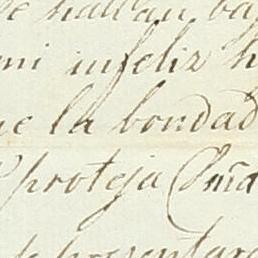 se hallan ba
mi infeliz h
ue la bondad
proteja Com̃a
presentar